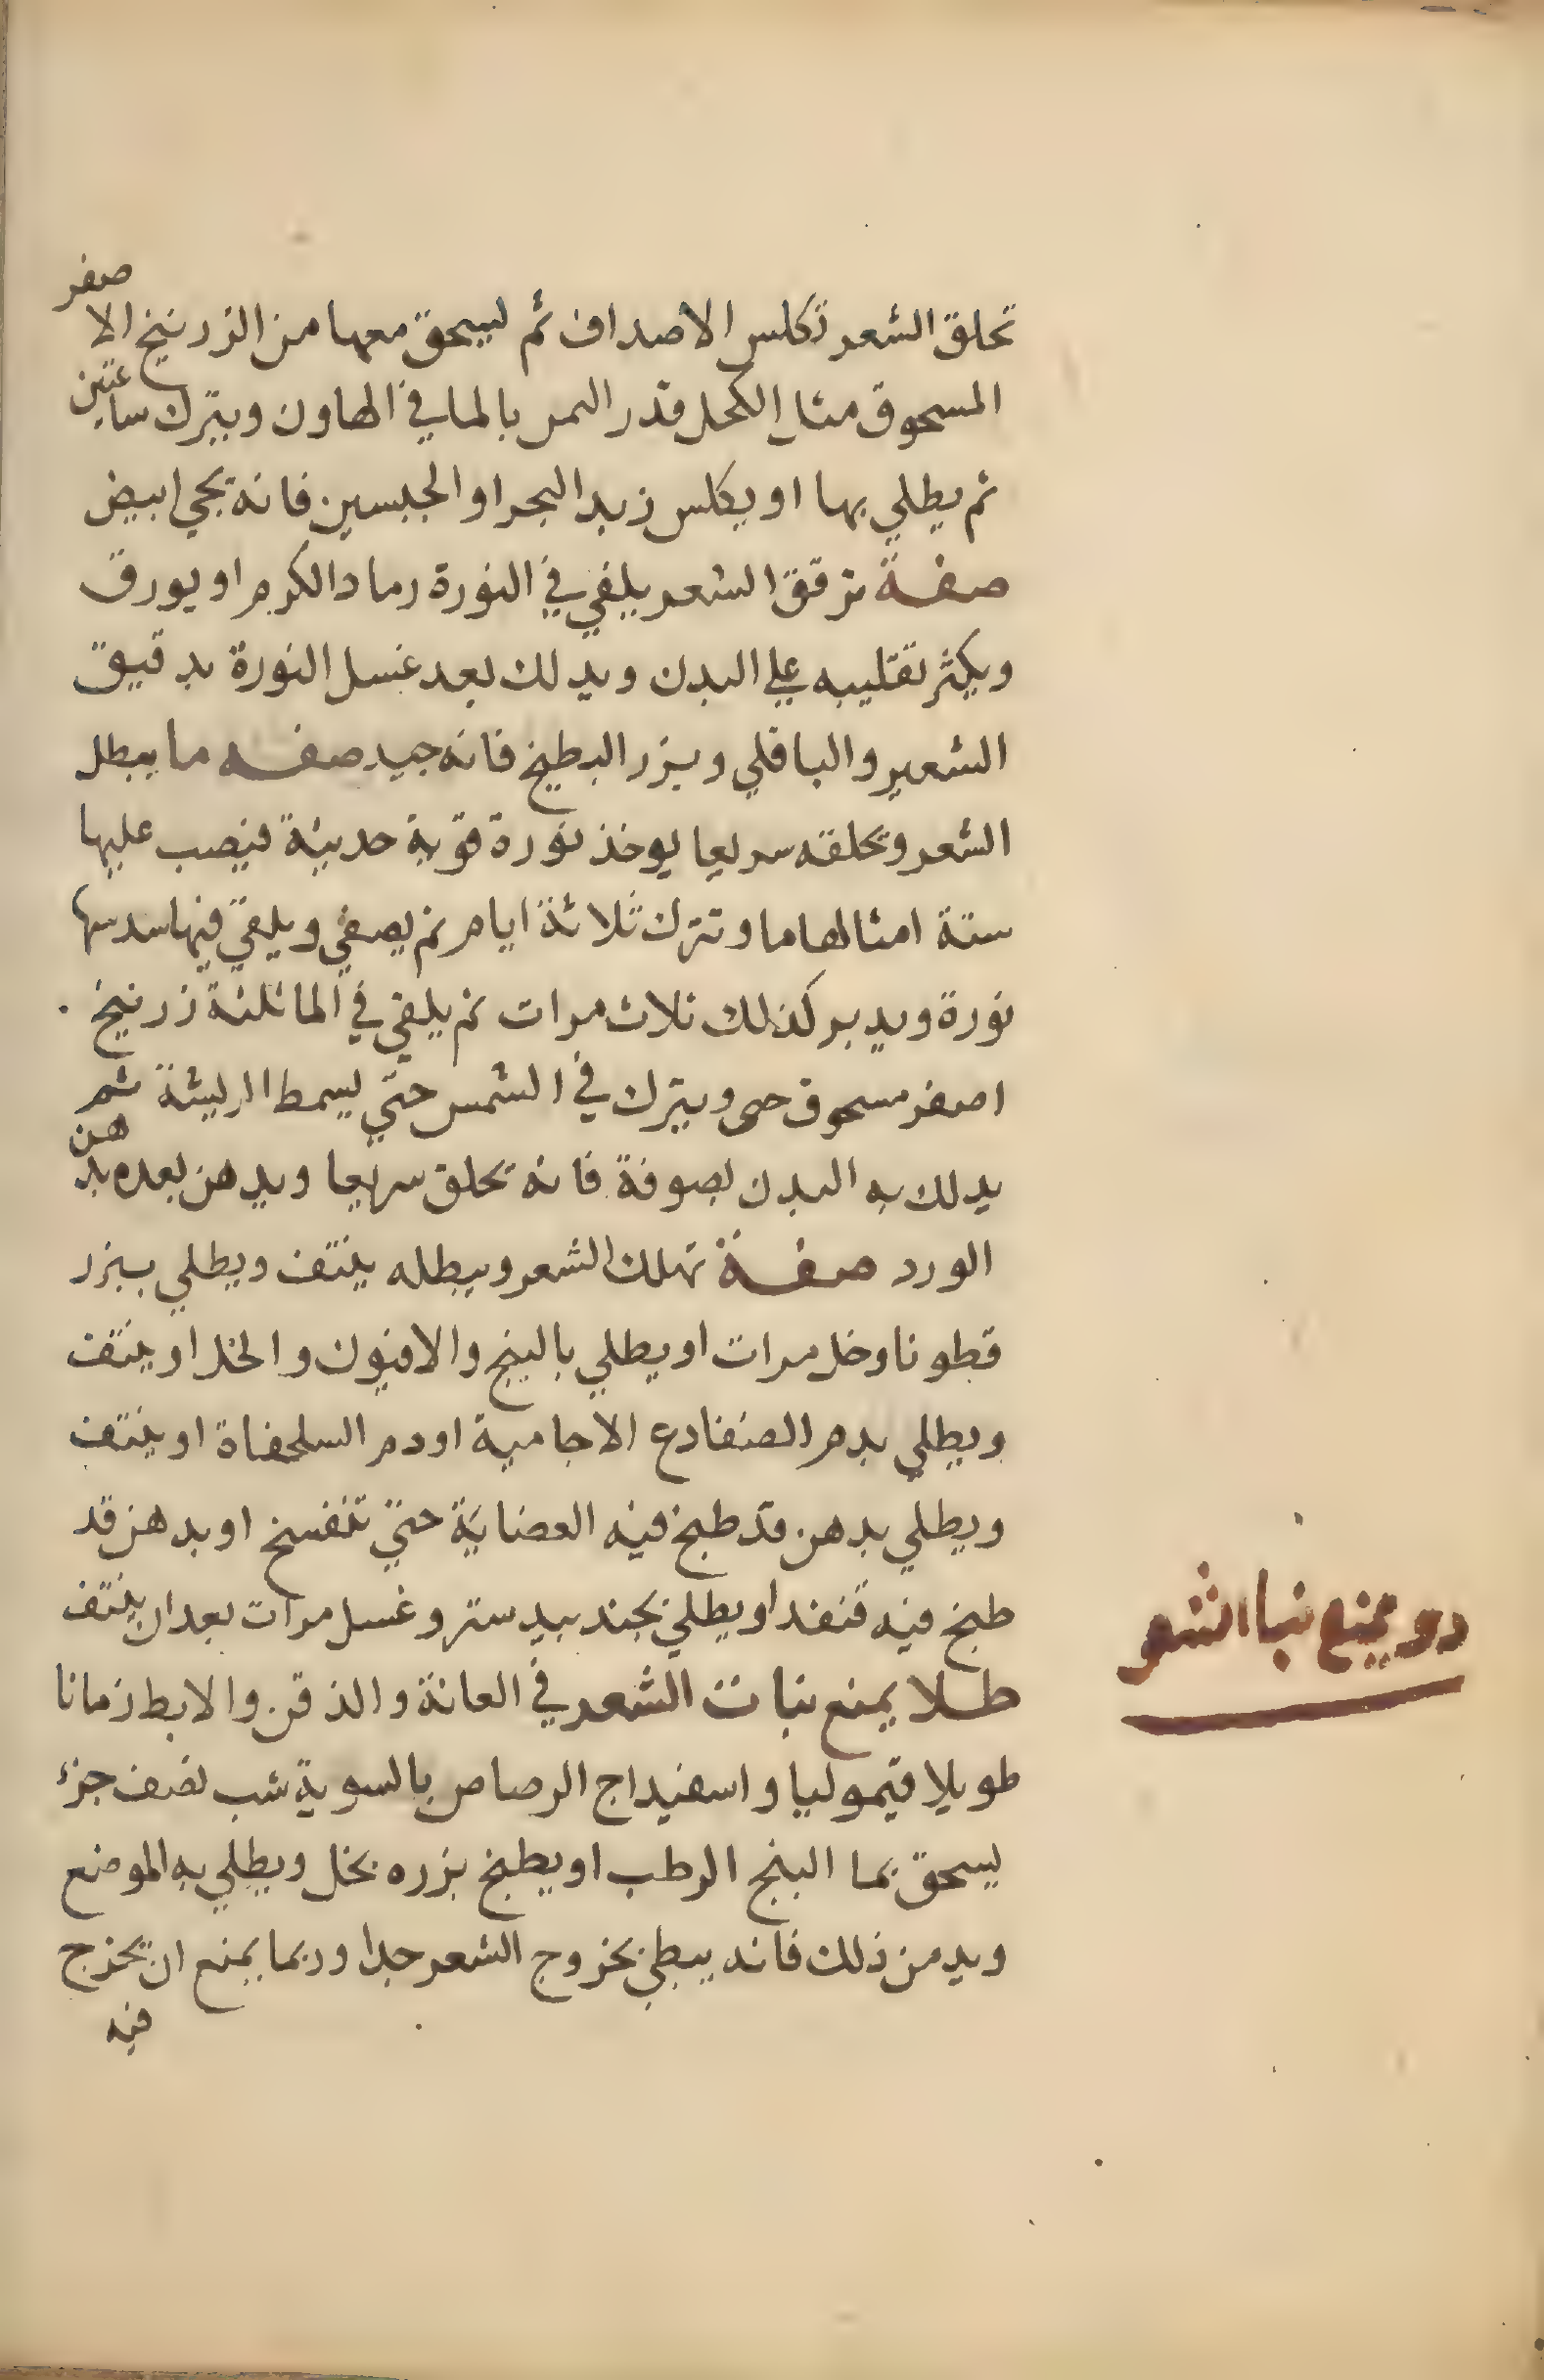 تحلق الشعر تكلس الاصداف ثم ليسحق معها من الزرنيخ الاصفر
المسحوق مثل الكحل قدر الثمن بالما في الهاون ويترك ساعتين
ثم يطلي بها او يكلس زبد البحر او الجبسين فانه يجي ابيض
صفة ترقق الشعر يلقي في النورة رماد الكرم او بورق
ويكثر تقليبه علي البدن ويدلك بعد غسل النورة بدقيق
الشعير والباقلي وبزر البطيخ فانه جيد صفه ما يبطل
الشعر ويحلقه سريعا يوخذ نورة قوية حديثة فيصب عليها
ستة امثالها ما وتترك ثلاثة ايام ثم يصفي ويلقي فيها سدسها
نورة ويدبر كذلك ثلاث مرات ثم يلقي في الما ثلثة زرنيخ
اصفر مسحوق ويترك في الشمس حتي يسمط الريشة ثم
يدلك به البدن بصوفة فانه يحلق سريعا ويدهن بعده بدهن
الورد صفة تهلك الشعر ويبطله ينتف ويطلي ببزر
قطونا وخل مرات او يطلي بالبنج والافيون والخل او ينتف
ويطلي بدم الضفادع الاجامية او دم السلحفاة او ينتف
ويطلي بدهن قد طبخ فيه العضاية حتي تتفسخ او بدهن قد
طبخ فيه قنفد او يطلي بجندبيدستر وغسل مرات بعد ان ينتف
طلا يمنع نبات الشعر في العانة والذقن والابط زمانا
طويلا قيموليا واسفيداج الرصاص بالسوية شب نصف جزء
يسحق بما البنج الرطب او يطبخ بزره بخل ويطلي به الموضع
ويدمن ذلك فانه يبطي بخروج الشعر جدا وربما يمنع ان يخرج
فيه
دو يمنع نبا الشعر